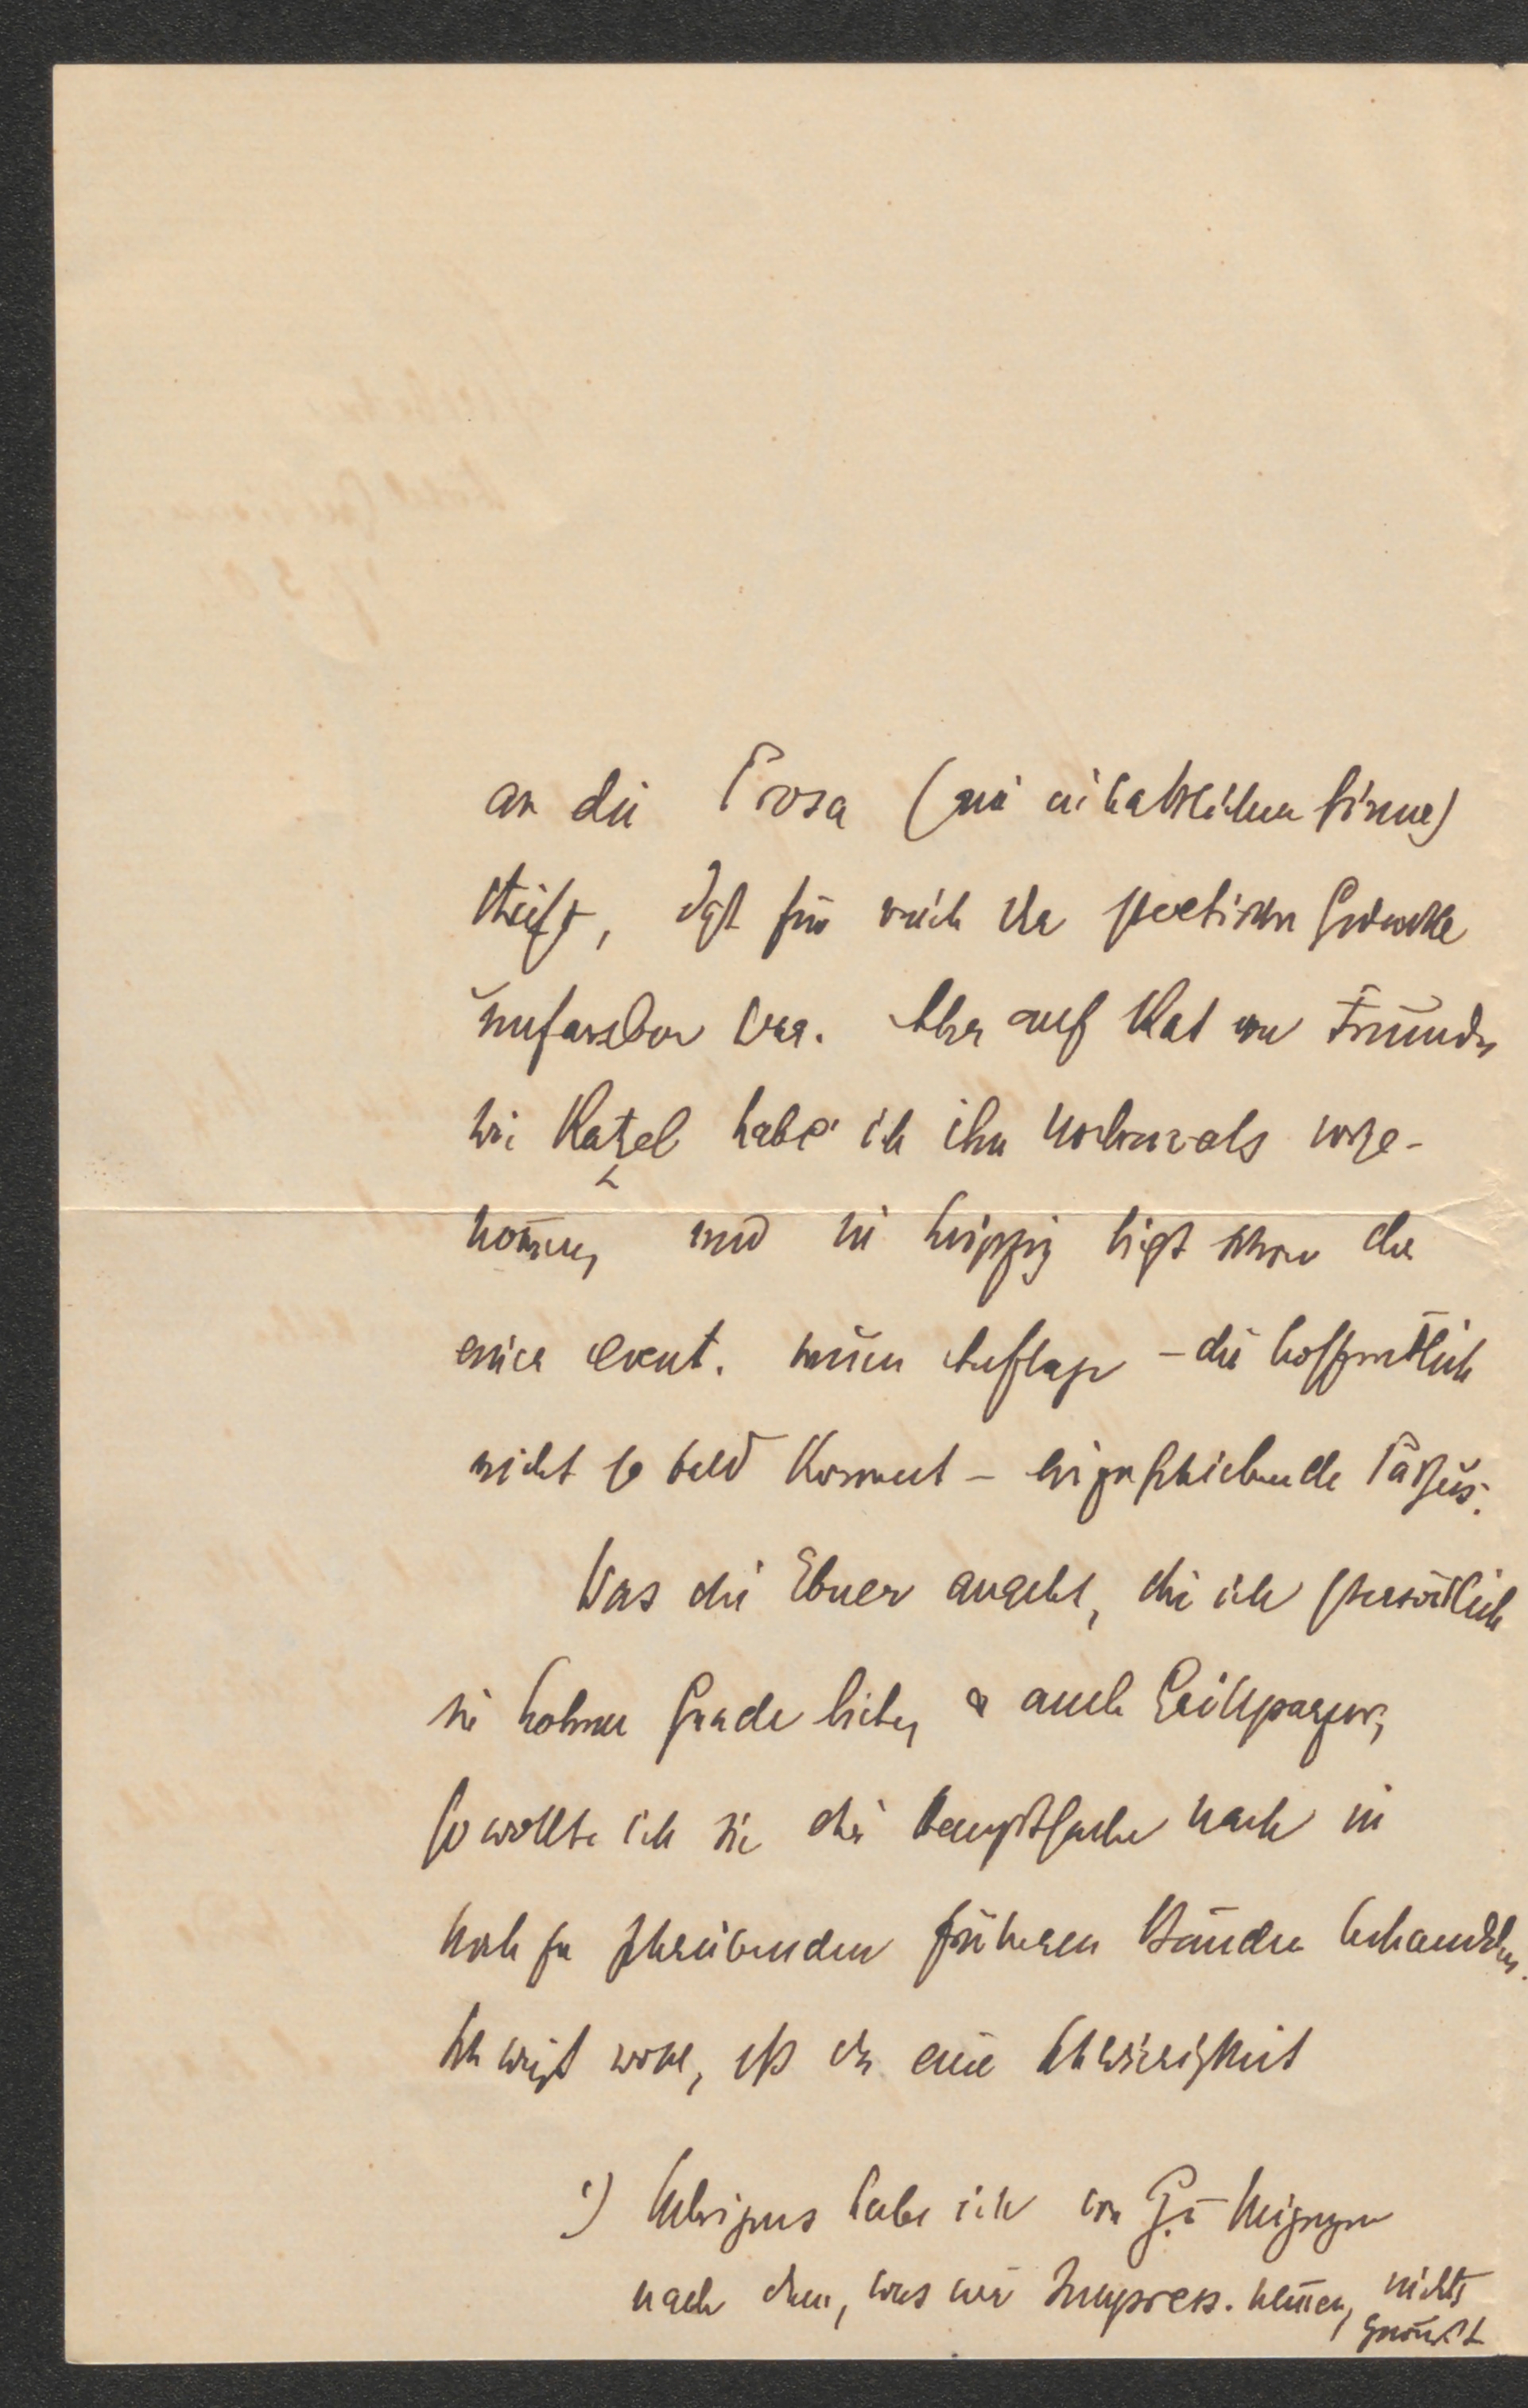 an die Prosa (im inhaltlichen Sinne)
streift, daß für mich der poetische Gedanke
unfassbar war. Aber auf Rat von Freunden
wie Ratzel habe ich ihn nochmals vorge-
nommen und in Leipzig liegt schon der
einer event. neuen Auflage – die hoffentlich
nicht so bald kommt – einzuschiebende Passus.
Was die Ebner angeht, die ich persönlich
in hohem Grade liebe, & auch
so wollte ich sie der Hauptsache nach in
noch zu schreibenden früheren Bänden behandeln.
Ich weiß wohl, daß da eine Schwierigkeit
1) Uebrigens habe ich von
nach dem, was wir Impress. nennen, nichts
gewußt